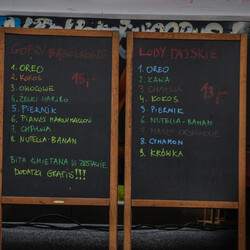 GOFRY BĄBELKOWE
1. OREO
2. KOKOS
3. OWOCOWE
4. ŻELKI HARIBO
5. PIERNIK
6. PIANKI MARSHMALLOW
7. CHAŁWA
8. NUTELLA-BANAN
15,-
BITA ŚMIETANA W ZESTAWIE
DODATKI GRATIS!!!
LODY TAJSKIE
1. OREO
2. KAWA
3. CHAŁWA
4. KOKOS
5. PIERNIK
6. NUTELLA-BANAN
7. MASŁO ORZECHOWE
8. CYNAMON
9. KRÓWKA
13,-